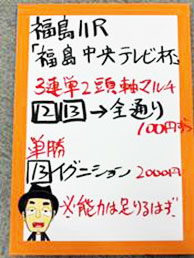 福島11R
「福島中央テレビ杯」
3連単2頭軸マルチ
12 13 →全通り
100円ずつ
単勝
13イグニション 2000円
※能力は足りるはず